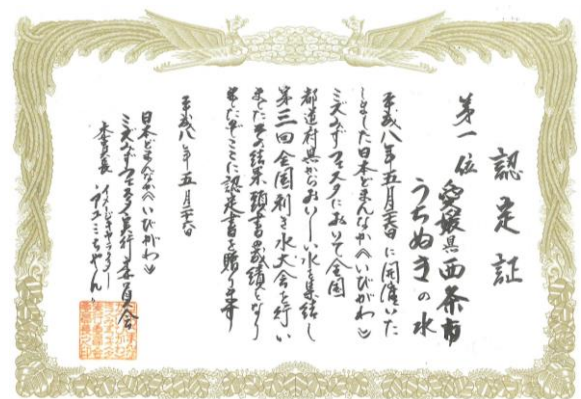 認定証
第一位 愛媛県西条市
うちぬきの水
平成八年五月二十六日に開演いた
しました日本どまんなかへいびがわ
ミズみずフェスタにおいて全国
都道府県からおいしい水を集結し
第三回全国利き水大会を行い
ました その結果頭書の成績となり
ましたのでここに認定書を贈ります
平成八年五月二十六日
日本どまんなかへいびがわ
ミズみずフェスタ実行委員会
本委員長 イメージキャラクター